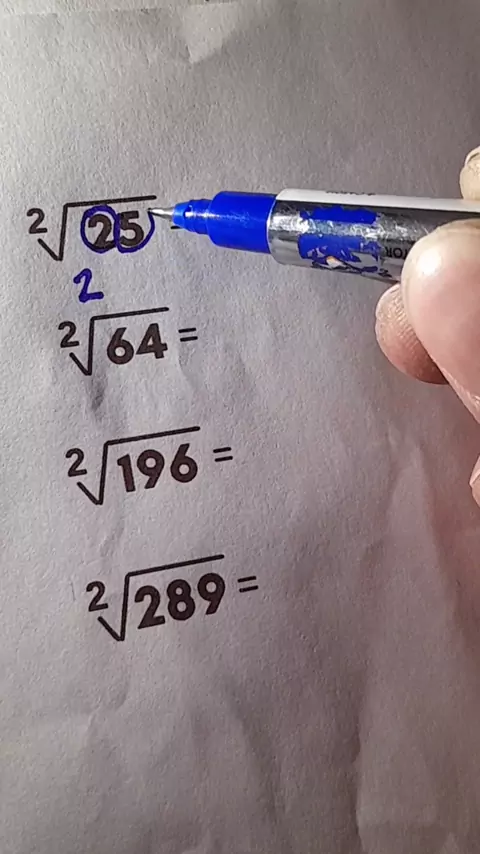 ²√25 =
2
²√64 =
²√196 =
²√289 =